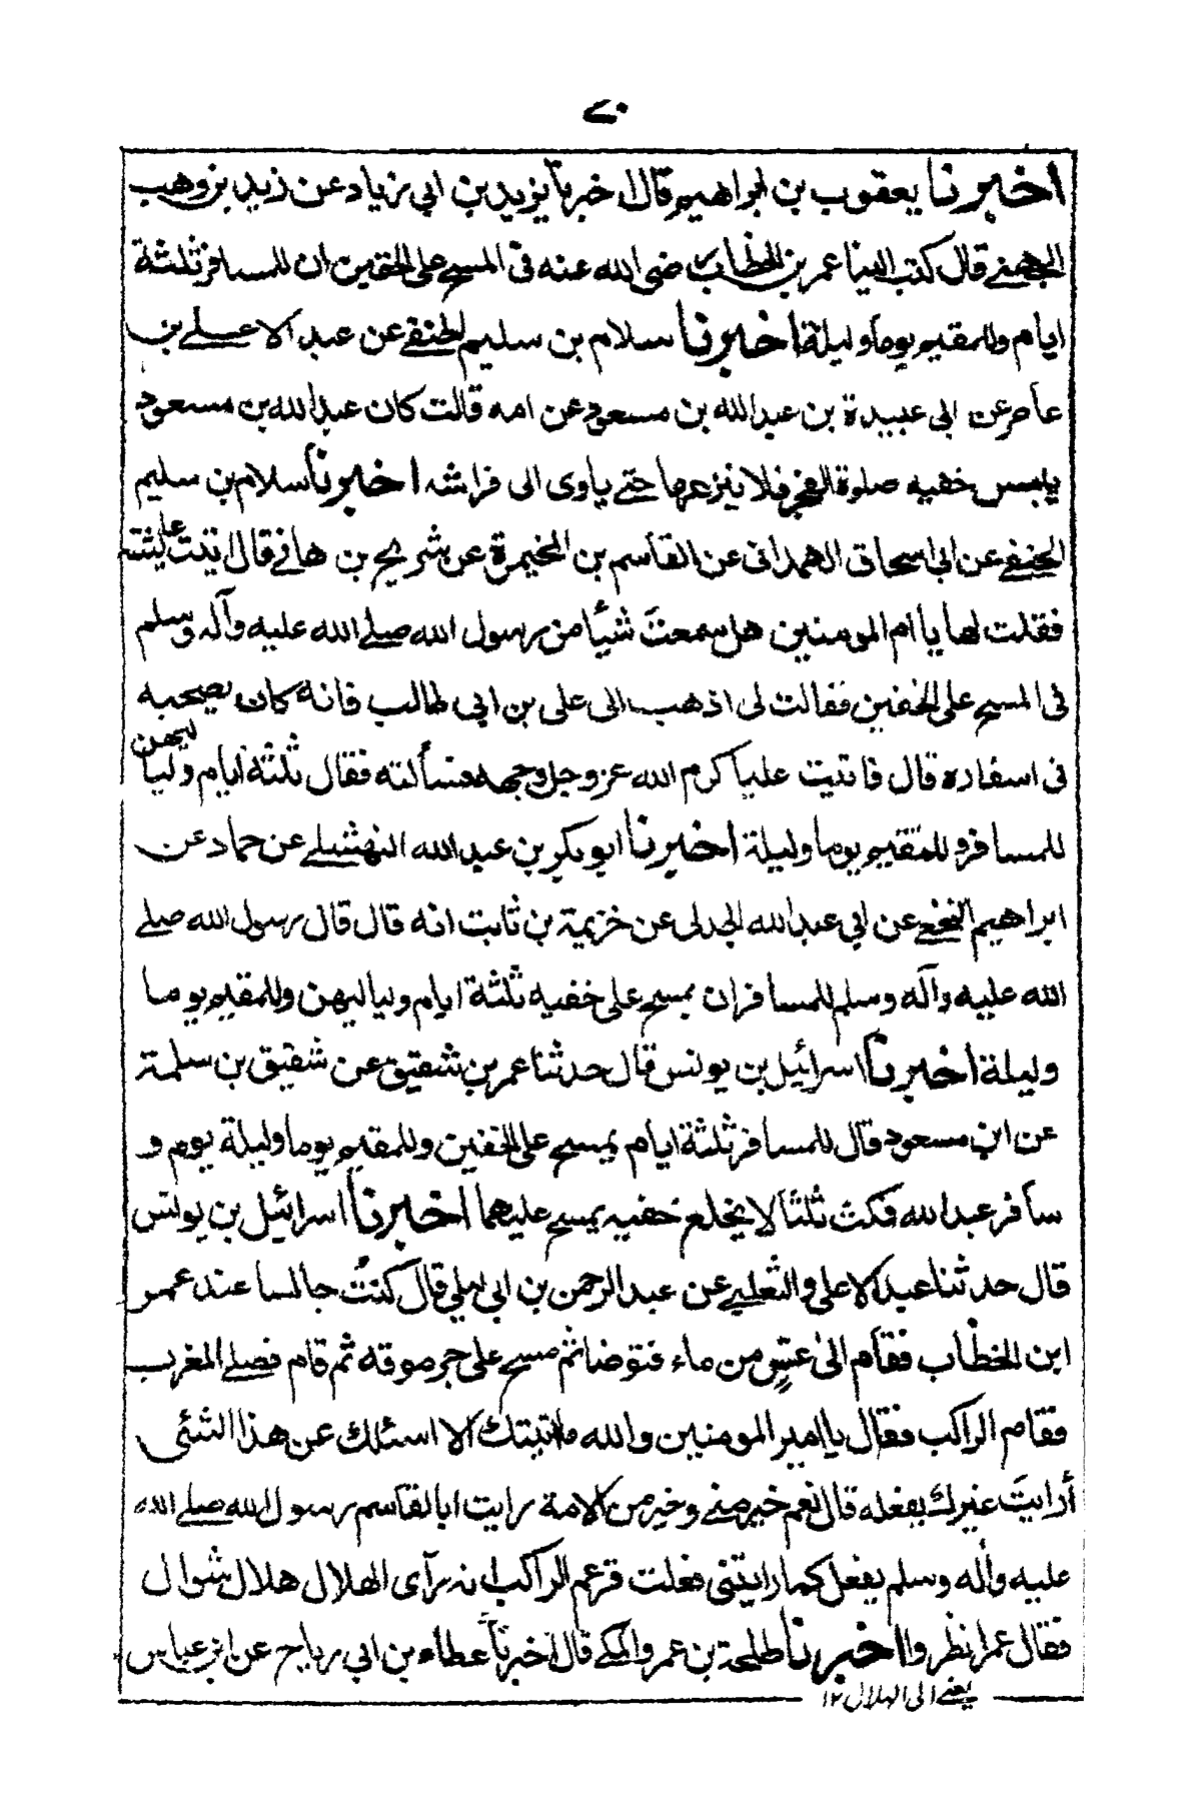 ٧٠
اخبرنا يعقوب بن ابراهيم قال اخبرنا يزيد بن ابي زياد عن زيد بن وهب
الجهني قال كتب الينا عمر بن الخطاب رضى الله عنه فى المسح على الخفين ان للمسافر ثلثة
ايام وللمقيم يوما وليلة اخبرنا سلام بن سليم الحنفي عن عبد الاعلے بن
عامر عن ابي عبيدة بن عبد الله بن مسعود عن امه قالت كان عبد الله بن مسعود
يلبس خفيه صلوة الفجر فلا ينزعها حتے ياوى الى فراشه اخبرنا سلام بن سليم
الحنفے عن ابي اسحاق الهمدانى عن القاسم بن المخيمرة عن شريح بن هانے قال اتيت عائشة
فقلت لها يا ام المومنين هل سمعت شيأ من رسول الله صلے الله عليه وآله وسلم
فى المسح على الخفين فقالت لى اذهب الى على بن ابي طالب فانه كان يصحبه
فى اسفاره قال فاتيت عليا كرم الله عز وجل وجهه فسألته فقال ثلثة ايام ولياليهن
للمسافر وللمقيم يوما وليلة اخبرنا ابو بكر بن عبد الله النهشلے عن حماد عن
ابراهيم النخعے عن ابي عبد الله الجدلى عن خزيمة بن ثابت انه قال قال رسول الله صلے
الله عليه وآله وسلم للمسافر ان يمسح على خفيه ثلثة ايام ولياليهن وللمقيم يوما
وليلة اخبرنا اسرائيل بن يونس قال حدثنا عمر بن شقيق عن شقيق بن سلمة
عن ابن مسعود قال للمسافر ثلثة ايام يمسح على الخفين وللمقيم يوما وليلة يوم و
سافر عبد الله فمكث ثلثا لا يخلع خفيه يمسح عليهما اخبرنا اسرائيل بن يونس
قال حدثنا عبد الاعلى والثعلبے عن عبد الرحمن بن ابي ليلي قال كنت جالسا عند عمر
ابن الخطاب فقام الى عسٍّ من ماء فتوضا ثم مسح على جرموقه ثم قام فصلے المغرب
فقام الراكب فقال يا امير المومنين والله ما اتيتك الا اسئلك عن هذا الشئى
أرايتَ غيرك يفعله قال نعم خير منے وخير من الامة رايت ابا القاسم رسول الله صلے الله
عليه وآله وسلم يفعل كما رايتنى فعلت فزعم الراكب انه رآى الهلال هلال شوال
فقال عمر انظروا اخبرنا طلحة بن عمرو المكے قال اخبرنا عطاء بن ابي رباح عن ابن عباس
يعنے الى الهلال ١٢